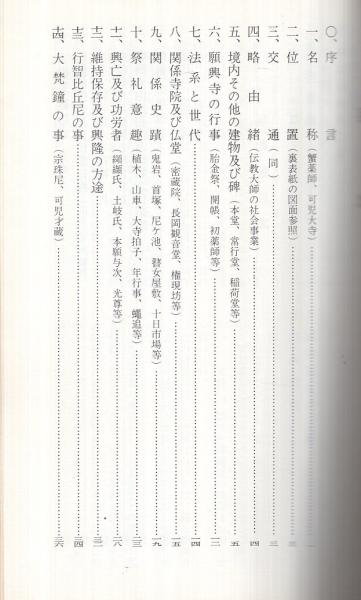 〇、序言
一、名称（蟹薬師、可児大寺）……一
二、位置（裏表紙の図面参照）……
三、交通（同）……三
四、略由緒（伝教大師の社会事業）……四
五、境内その他の建物及び碑（本堂、常行堂、稲荷堂等）……五
六、願興寺の行事（胎金祭、開帳、初薬師等）……
七、法系と世代……一四
八、関係寺院及び仏堂（密蔵院、長岡観音堂、権現坊等）……一五
九、関係史蹟（鬼岩、首塚、尼ケ池、瞽女屋敷、十日市場等）……一九
十、祭礼意趣（植木、山車、大寺拍子、年行事、蠅追等）……二三
十一、興亡及び功労者（纐纈氏、土岐氏、本願与次、光尊等）……二八
十二、維持保存及び興隆の方途……三二
十三、行智比丘尼の事……三四
十四、大梵鐘の事（宗珠尼、可児才蔵）……三六